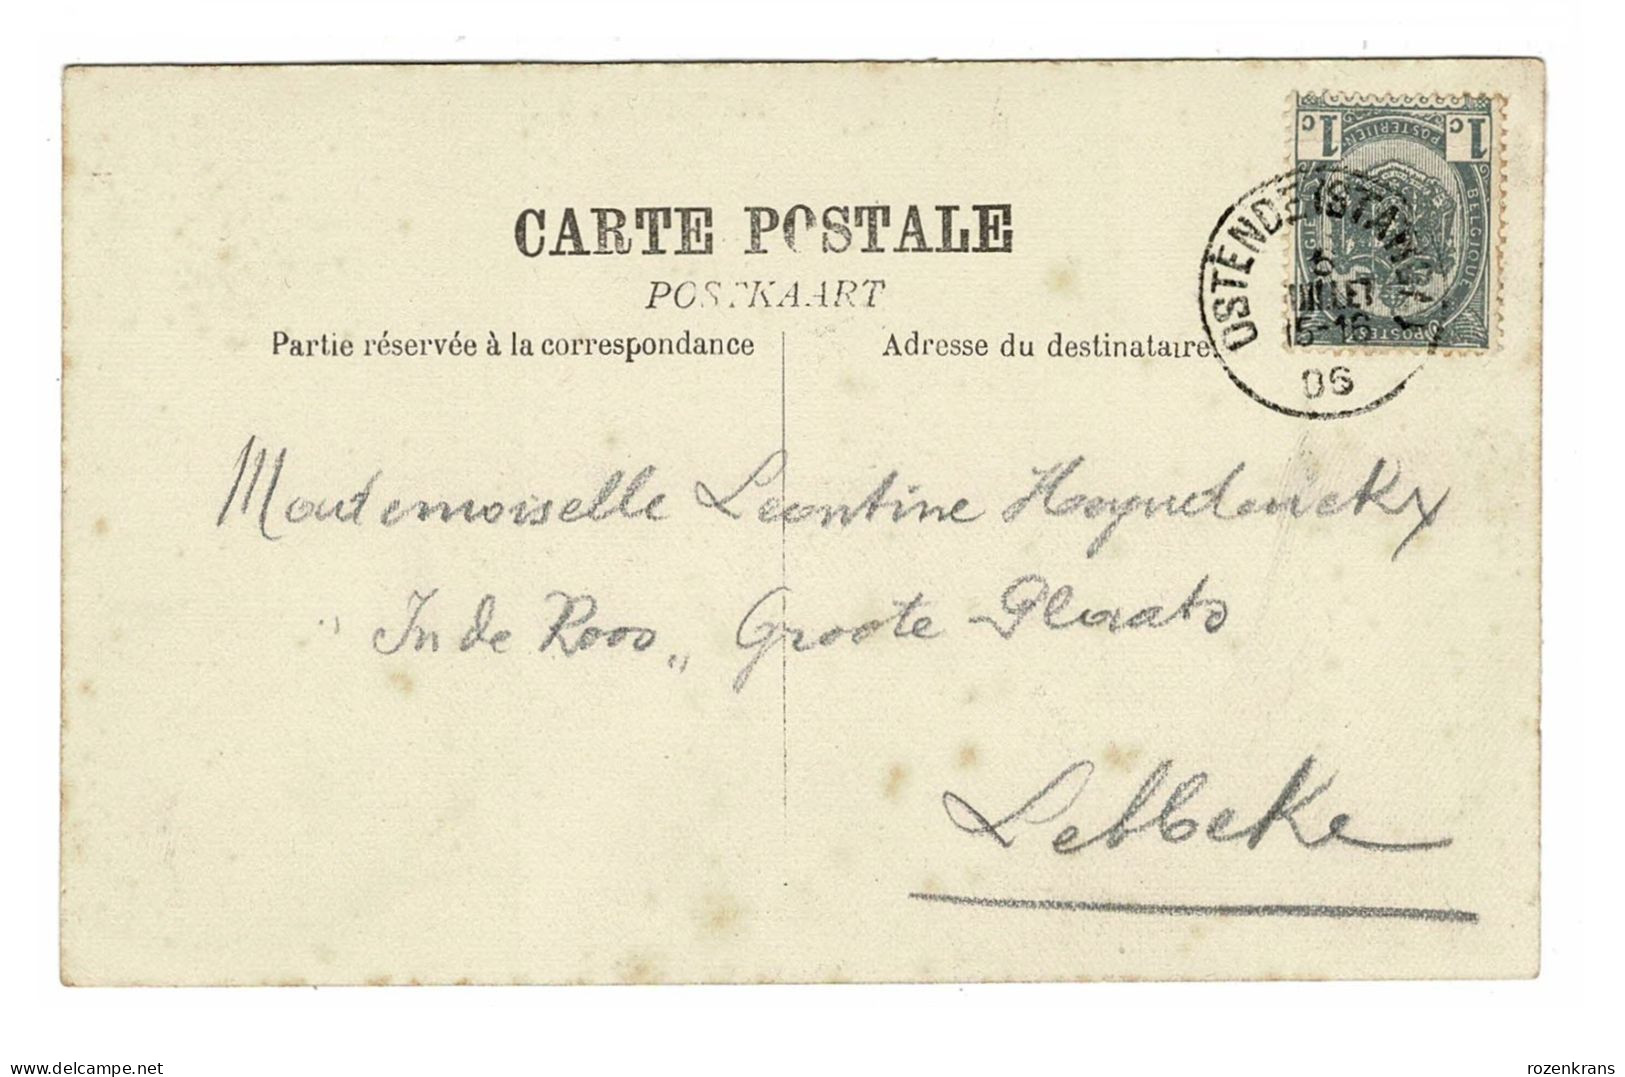 CARTE POSTALE
POSTKAART
Partie réservée à la correspondance
Adresse du destinataire.
1c 1c
POSTERIJEN
BELGIQUE
POSTES
OSTENDE
JUILLET
15-16
06
Mademoiselle Leontine
"In de Roos" Groote Plaats
Lebbeke
delcampe.net
rozenkrans